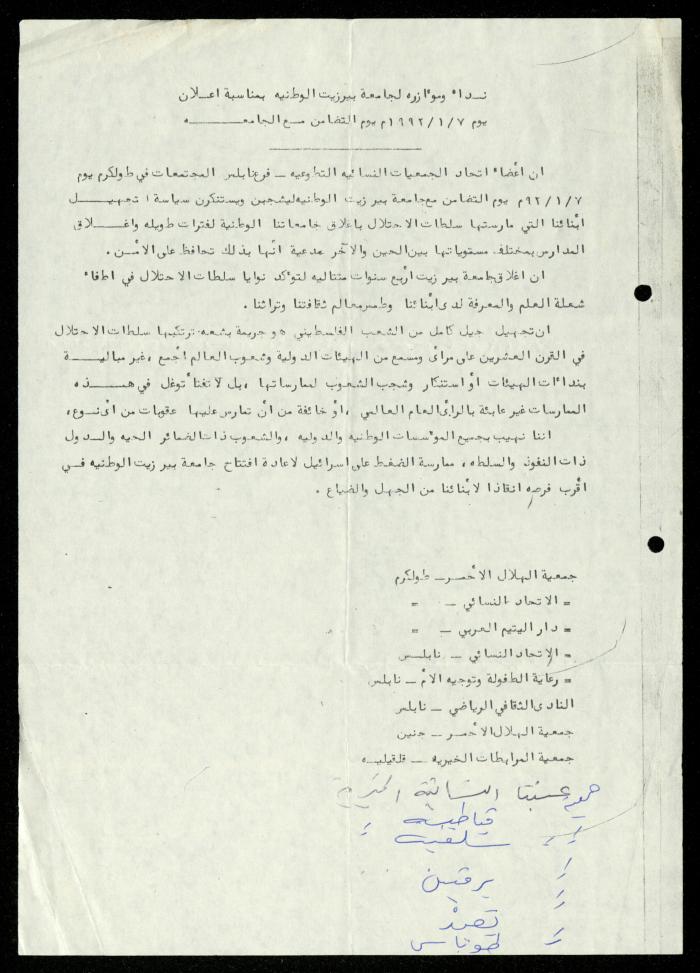 نداء ومؤازره لجامعة بيرزيت الوطنيه بمناسبة اعلان
يوم ١٩٩٢/١/٧م يوم التضامن مع الجامعه
ان أعضاء اتحاد الجمعيات النسائيه التطوعيه – فرع نابلس المجتمعات في طولكرم يوم
٩٢/١/٧م يوم التضامن مع جامعة بير زيت الوطنيه ليشجبن ويستنكرن سياسة تجهيل
أبنائنا التي مارستها سلطات الاحتلال باغلاق جامعاتنا الوطنية لفترات طويله واغلاق
المدارس بمختلف مستوياتها بين الحين والآخر مدعية انها بذلك تحافظ على الأمن.
ان اغلاق جامعة بير زيت أربع سنوات متتاليه لتؤكد نوايا سلطات الاحتلال في اطفاء
شعلة العلم والمعرفة لدى أبنائنا وطمس معالم ثقافتنا وتراثنا.
ان تجهيل جيل كامل من الشعب الفلسطيني هو جريمة بشعه ترتكبها سلطات الاحتلال
في القرن العشرين على مرأى ومسمع من الهيئات الدولية وشعوب العالم أجمع، غير مبالية
بنداءات الهيئات أو استنكار وشجب الشعوب لممارساتها، بل لا تفتأ توغل في هذه
الممارسات غير عابئة بالرأى العام العالمي، أو خائفة من أن تمارس عليها عقوبات من أى نوع،
اننا نهيب بجميع المؤسسات الوطنيه والدوليه، والشعوب ذات الضمائر الحيه والدول
ذات النفوذ والسلطه، ممارسة الضغط على اسرائيل لاعادة افتتاح جامعة بير زيت الوطنيه في
أقرب فرصه انقاذا لأبنائنا من الجهل والضياع.
جمعية الهلال الأحمر – طولكرم
= الاتحاد النسائي – =
= دار اليتيم العربي – =
= الاتحاد النسائي – نابلس
= رعاية الطفولة وتوجيه الأم – نابلس
النادى الثقافي الرياضي – نابلس
جمعية الهلال الأحمر – جنين
جمعية المرابطات الخيريه – قلقيليه
جمعية عنبتا النسائية الخيرية
قباطيه
// سلفيت //
// برقين
// تصيد
// طوباس